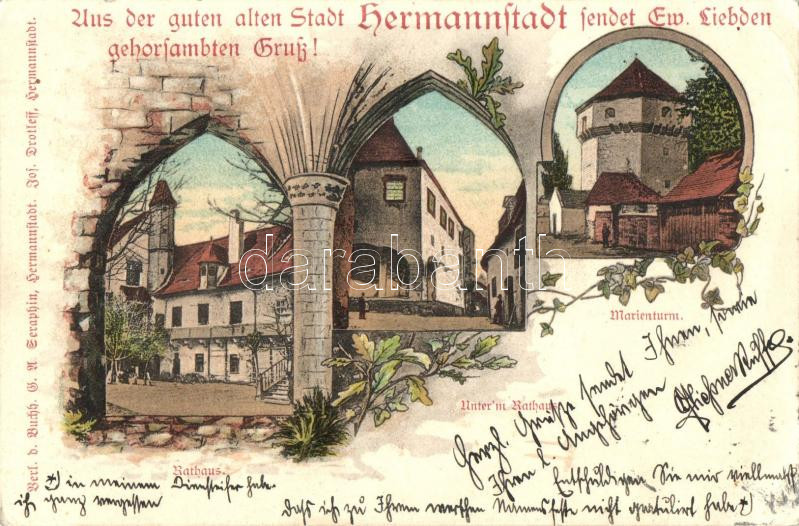 Aus der guten alten Stadt Hermannstadt sendet Ew. Liebden
gehorsambten Gruß!
Verl. d. Buchh. G. A. Seraphin, Hermannstadt. Jos. Drotleff, Hermannstadt.
darabanth
Marienturm.
Unter'm Rathaus.
Rathaus.
Herzl. Grüße sendet Ihnen, sowie
Ihren l. Angehörigen
Entschuldigen Sie mir vielmals
dass ich zu Ihrem werthen Namensfeste nicht gratulirt habe *)
*) in meinem Diensteifer habe
ich ganz vergessen